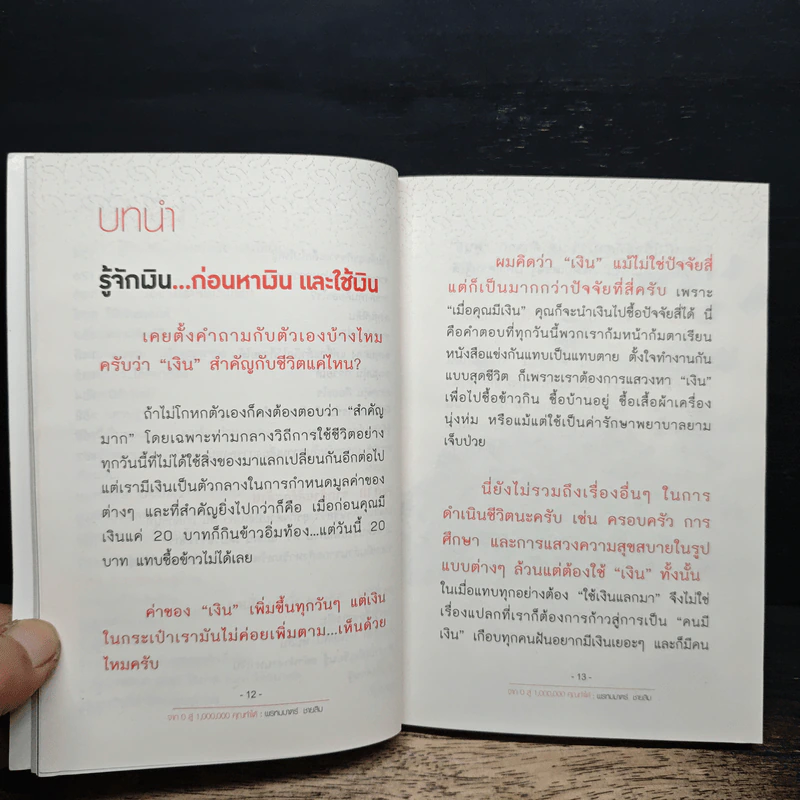 บทนำ
รู้จักเงิน...ก่อนหาเงิน และใช้เงิน
เคยตั้งคำถามกับตัวเองบ้างไหม
ครับว่า “เงิน” สำคัญกับชีวิตแค่ไหน?
ถ้าไม่โกหกตัวเองก็คงต้องตอบว่า “สำคัญ
มาก” โดยเฉพาะท่ามกลางวิถีการใช้ชีวิตอย่าง
ทุกวันนี้ที่ไม่ได้ใช้สิ่งของมาแลกเปลี่ยนกันอีกต่อไป
แต่เรามีเงินเป็นตัวกลางในการกำหนดมูลค่าของ
ต่างๆ และที่สำคัญยิ่งไปกว่าก็คือ เมื่อก่อนคุณมี
เงินแค่ 20 บาทก็กินข้าวอิ่มท้อง...แต่วันนี้ 20
บาท แทบซื้อข้าวไม่ได้เลย
ค่าของ “เงิน” เพิ่มขึ้นทุกวันๆ แต่เงิน
ในกระเป๋าเรามันไม่ค่อยเพิ่มตาม...เห็นด้วย
ไหมครับ
- 12 -
จาก 0 สู่ 1,000,000 คุณก็ทำได้ : พรหมมาตร์ ชายสิม
ผมคิดว่า “เงิน” แม้ไม่ใช่ปัจจัยสี่
แต่ก็เป็นมากกว่าปัจจัยที่สี่ครับ เพราะ
“เมื่อคุณมีเงิน” คุณก็จะนำเงินไปซื้อปัจจัยสี่ได้ นี่
คือคำตอบที่ทุกวันนี้พวกเราก้มหน้าก้มตาเรียน
หนังสือแข่งกันแทบเป็นแทบตาย ตั้งใจทำงานกัน
แบบสุดชีวิต ก็เพราะเราต้องการแสวงหา “เงิน”
เพื่อไปซื้อข้าวกิน ซื้อบ้านอยู่ ซื้อเสื้อผ้าเครื่อง
นุ่งห่ม หรือแม้แต่ใช้เป็นค่ารักษาพยาบาลยาม
เจ็บป่วย
นี่ยังไม่รวมถึงเรื่องอื่นๆ ในการ
ดำเนินชีวิตนะครับ เช่น ครอบครัว การ
ศึกษา และการแสวงความสุขสบายในรูป
แบบต่างๆ ล้วนแต่ต้องใช้ “เงิน” ทั้งนั้น
ในเมื่อแทบทุกอย่างต้อง “ใช้เงินแลกมา” จึงไม่ใช่
เรื่องแปลกที่เราก็ต้องการก้าวสู่การเป็น “คนมี
เงิน” เกือบทุกคนฝันอยากมีเงินเยอะๆ และก็มีคน
- 13 -
จาก 0 สู่ 1,000,000 คุณก็ทำได้ : พรหมมาตร์ ชายสิม